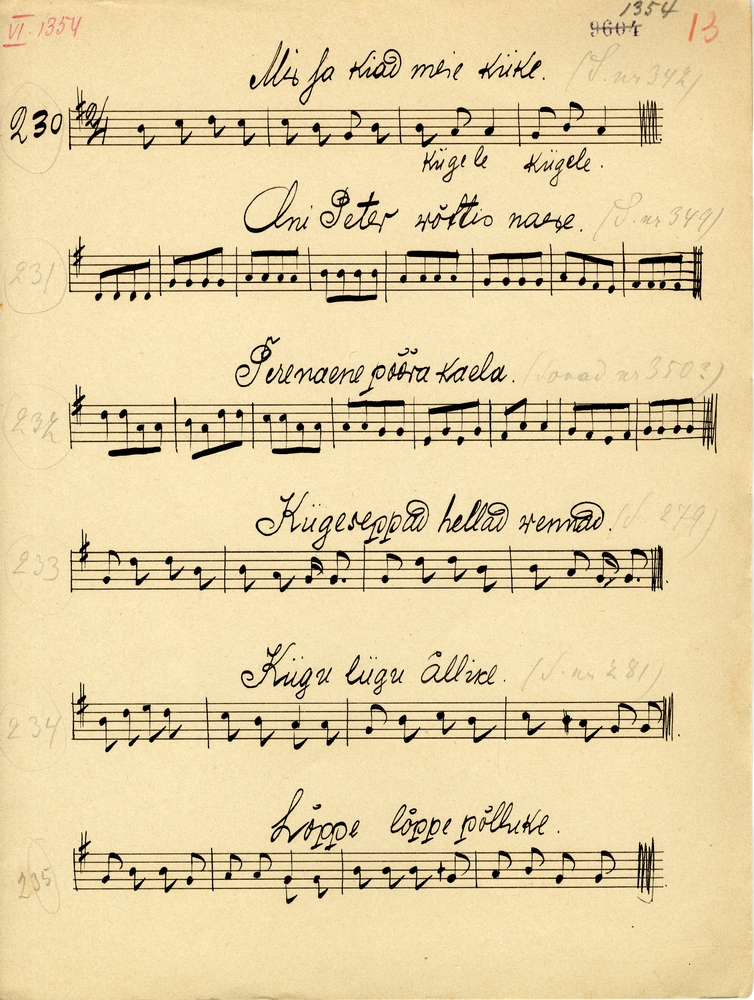 VI. 1354
1354
9604
13
Mis sa kiad meie kiike. (S. nr 342)
230
2/4
Kiigele kiigele.
Ani Peter wõttis naese. (S. nr 349)
231
Perenaene pööra kaela. (Sonad nr 350?)
232
Kiigeseppad hellad wennad. (S. 279)
233
Kiigu liigu ällike. (S. nr 281)
234
Lõppe lõppe põlluke.
235